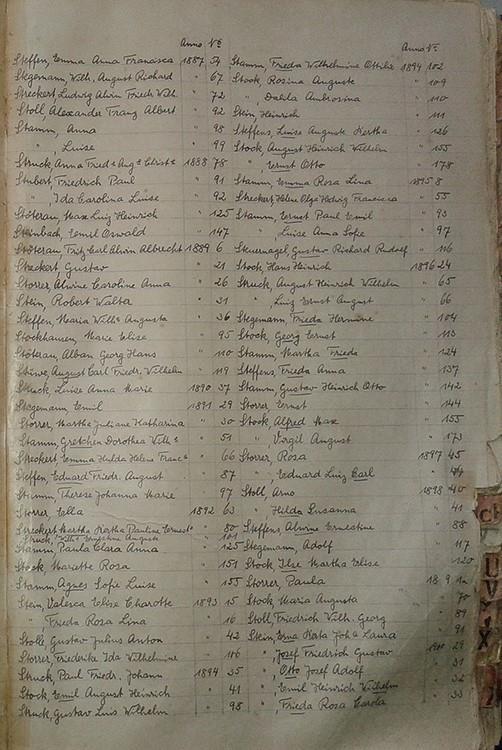 Anno No
Steffen, Emma Anna Francisca 1887 54
Stegemann, Wilh. August Richard " 67
Streckert, Ludwig Alwin Friedr. Wilh. " 72
Stoll, Alexander Franz Albert " 92
Stamm, Anna " 98
" , Luise " 99
Struck, Anna Fredke Auge Christe 1888 78
Stubert, Friedrich Paul " 91
" Ida Carolina Luise " 92
Stöterau, Max Luig Heinrich " 125
Steinbach, Emil Oswald " 147
Stöterau, Fritz Carl Alwin Albrecht 1889 6
Streckert, Gustav " 21
Storrer, Alwine Caroline Anna " 26
Stein, Robert Walta " 31
Steffen, Maria Wilhe Augusta " 36
Stockhausen, Marie Elise " 95
Stötzau, Alban Georg Hans " 110
Stüwe, August Carl Friedr. Wilhelm " 119
Struck, Luise Anna Marie 1890 37
Stegemann, Emil 1891 29
Storrer, Martha Juliane Katharina " 30
Stamm, Gretchen Dorothea Wilhe " 51
Streckert, Emma Hulda Helene Franca " 66
Steffen, Eduard Friedr. August " 87
Stumm, Therese Johanna Marie " 97
Storrer, Ella 1892 63
Streckert, Martha Katha Pauline Ernest " 80
Struck, Wilhe Ernestine Auguste " 101
Stamm, Paula Clara Anna " 125
Stock, Mariette Rosa " 151
Stamm, Agnes Sofie Luise " 155
Stein, Valesca Elise Charotte 1893 15
" Frieda Rosa Lina " 16
Stoll, Gustav Julius Anton " 42
Storrer, Friederike Ida Wilhelmine " 116
Struck, Paul Friedr. Johann 1894 35
Stock, Emil August Heinrich " 41
Struck, Gustav Luis Wilhelm " 98
Anno No
Stamm, Frieda Wilhelmine Ottilie 1894 102
Stock, Rosina Auguste " 109
" , Dalila Ambrosina " 110
Stein, Heinrich " 111
Steffens, Luise Auguste Hertha " 126
Stock, August Heinrich Wilhelm " 155
" , Ernst Otto " 178
Stamm, Emma Rosa Lina 1895 8
Streckert, Helene Olga Hedwig Francisca " 55
Stamm, Ernst Paul Emil " 93
" , Luise Anna Sofie " 97
Steuernagel, Gustav Richard Rudolf " 116
Stock, Hans Heinrich 1896 24
Struck, August Heinrich Wilhelm " 65
" , Luig Ernst August " 66
Stegemann, Frieda Hermine " 104
Stock, Georg Ernst " 113
Stamm, Martha Frieda " 124
Steffens, Frieda Anna " 137
Stamm, Gustav Heinrich Otto " 142
Storrer, Ernst " 144
Stock, Alfred Max " 155
" , Virgil August " 173
Storrer, Rosa 1897 45
" , Eduard Luig Carl "
Stoll, Arno 1898 40
" Hilda Susanna " 41
Steffens, Alwine Ernestine " 88
Stegemann, Adolf " 117
Stock, Ilse Martha Elise " 120
Storrer, Paula
Stock, Maria Augusta " 70
Stoll, Friedrich Wilh. Georg " 89
Stein, Erna Katha Joha Laura " 91
" , Josef Friedrich Gustav 29
" , Otto Josef Adolf " 31
" , Emil Heinrich Wilhelm " 32
" , Frieda Rosa Carola " 33